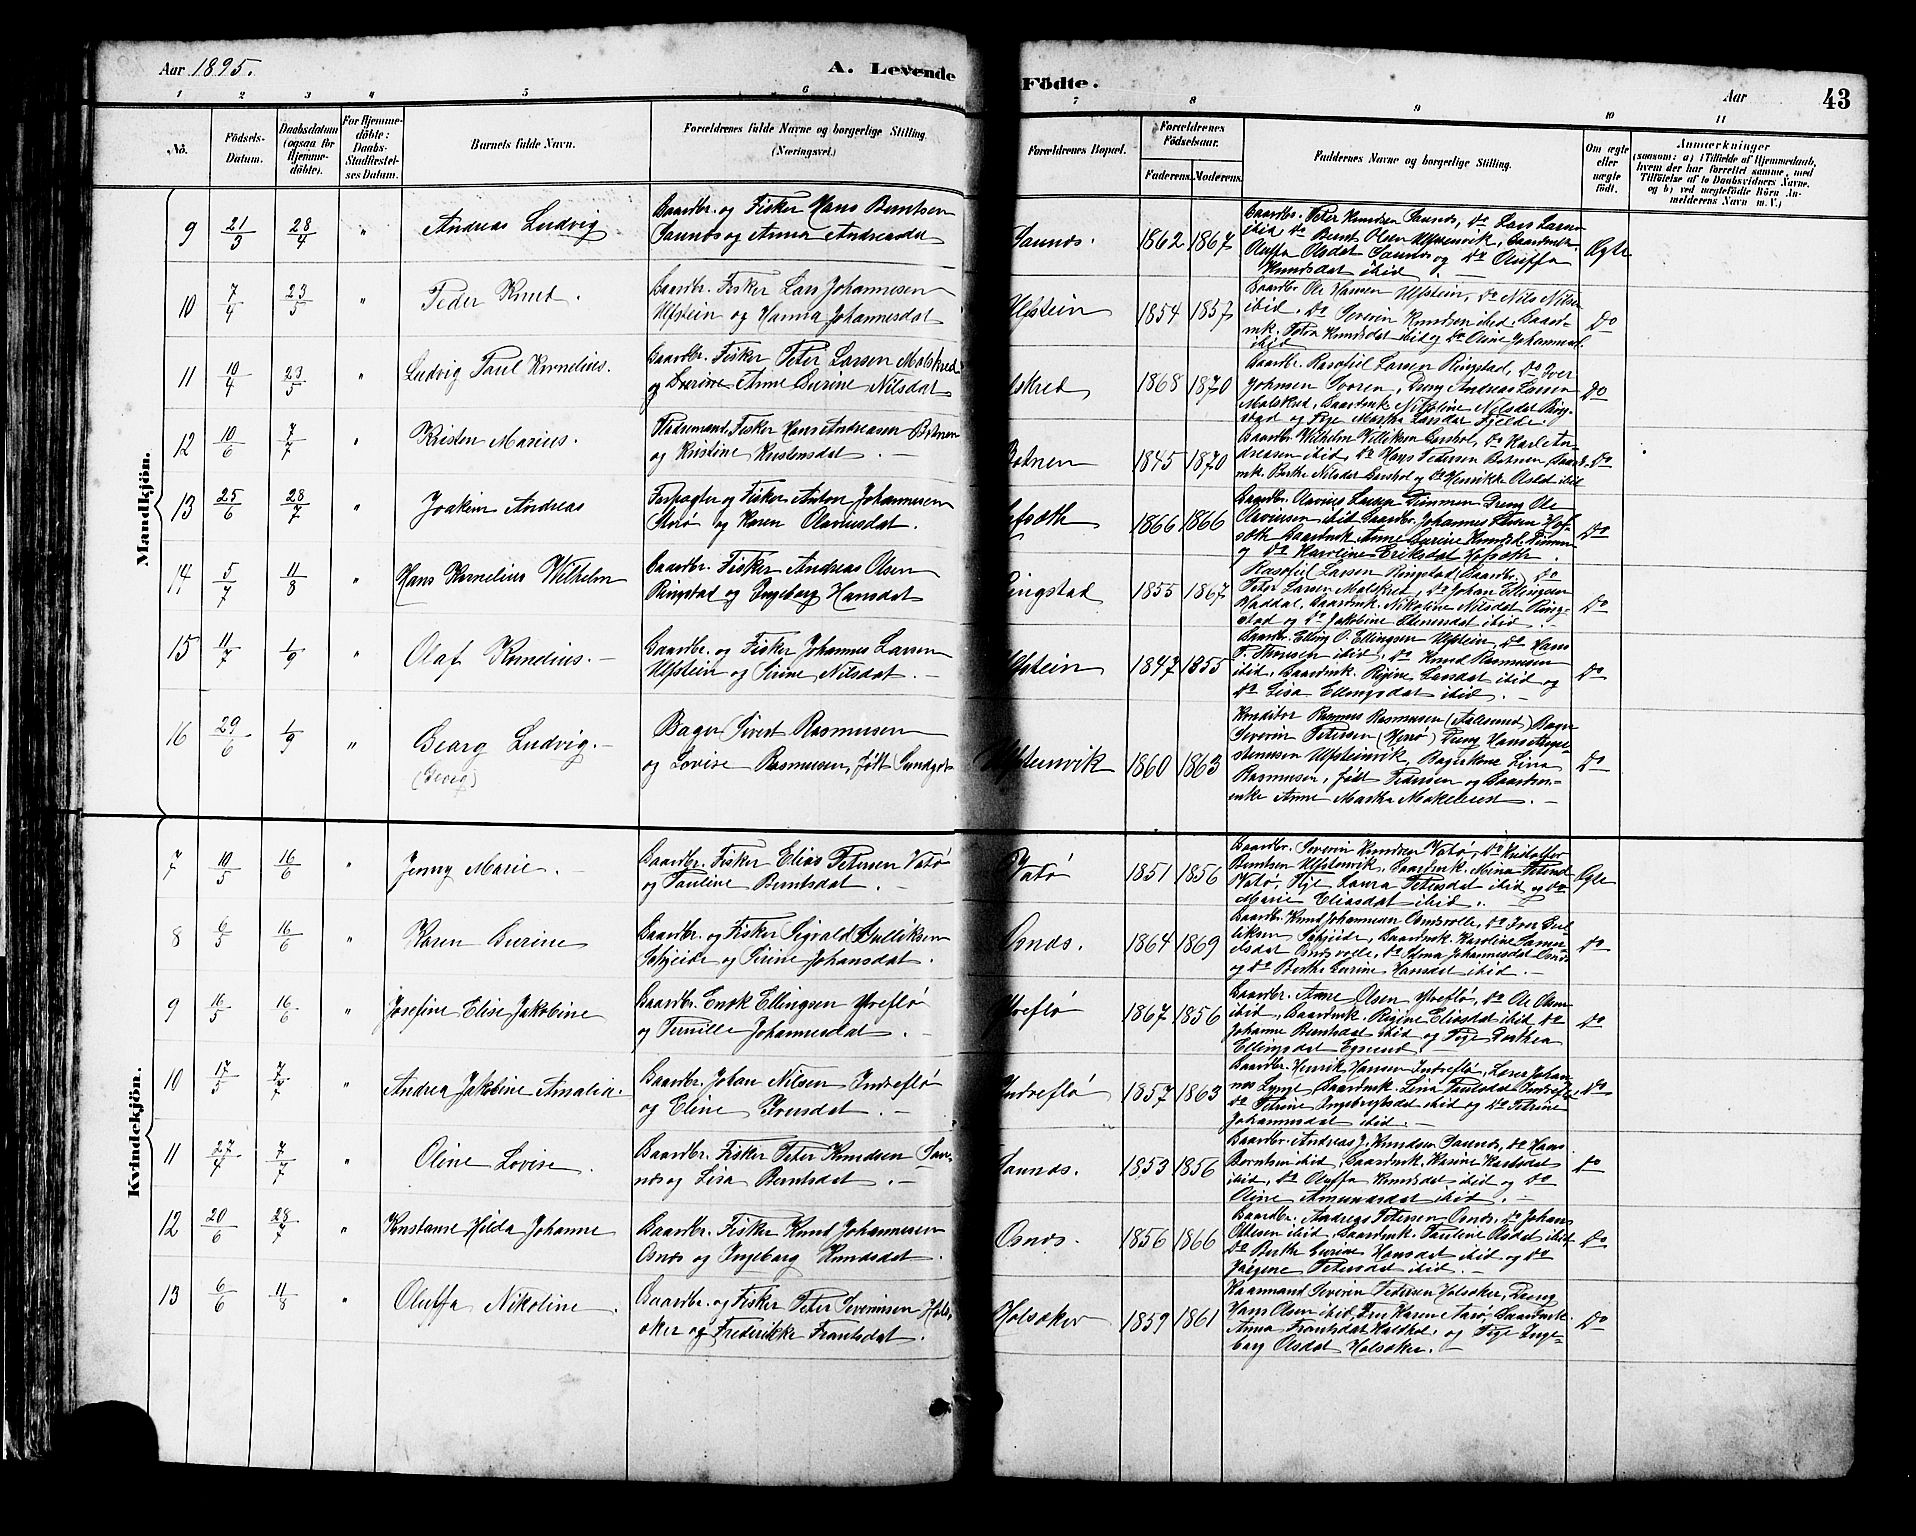 Aar 1895. A. Levende Födte. Aar 43
1 2 3 4 5 6 7 8 9 10 11
No. Födsels-Datum. Daabsdatum (ogsaa for Hjemmedöbte). For Hjemmedöbte: Daabs-Stadfæstelses Datum. Barnets fulde Navn. Forældrenes fulde Navne og borgerlige Stilling. (Næringsvei.) Forældrenes Bopæl. Forældrenes Födselsaar. Faderens. Moderens. Faddernes Navne og borgerlige Stilling. Om ægte eller uægte födt. Anmærkninger (saasom: a) i Tilfælde af Hjemmedaab, hvem der har forrettet samme, med Tilföielse af to Daabsvidners Navne, og b) ved uægtefödte Börn Anmelderens Navn m. V.)
Mandkjön.
9 21/3 28/4 " Andreas Ludvig
Gaardbr. og Fisker Hans Berntsen
Saunes og Anna Andreasdat
Saunes. 1862 1867
Gaardbr. Peter Knudsen Saunes, Do Lars Larsen
ibid Do Bernt Olsen Ulfsteinvik, Gaardmk.
Oluffa Olsdat Saunes og Do Oluffa
Knudsdat ibid
Ægte
10 7/4 23/5 " Peder Knut.
Gaardbr. Fisker Lars Johannesen
Ulfstein og Hanna Johannesdat
Ulfstein 1854 1857
Gaardbr Ole Hansen Ulfstein, Do Nils Nilsen
ibid. Do Severin Knudsen ibid Gaard-
mk. Petra Knudsdat ibid og Do Oline Johannesd.
ibid
Do
11 10/4 23/5 " Ludvig Paul Kornelius.
Gaardbr. Fisker Peter Larsen Molskred
og Gurine Anne Gurine Nilsdat
1868 1870
Gaardbr. Rasmus Larsen Ringstad, Do Iver
Johnsen Svoren, Dreng Andreas Larsen
Molskred, Gaardmk Nikoline Nilsdat Ring-
stad og Pige Martha Larsdat Fjelde.
Do
12 10/6 7/7 " Kristen Marius.
Pladsmand, Fisker Hans Andreasen Botnen
og Kristine Kristensdat.
Botnen 1845 1870
Gaardbr Wilhelm Villiksen Garshol, Do Karl An-
dreasen ibid, Do Hans Pedersen Botnen, Gaard-
mk. Berthe Nilsdat Garshol og Do Henrikke Olsdat ibid
Do
13 25/6 28/7 " Joakim Andreas
Forpagter og Fisker Anton Johannesen
og Karen Olavusdat.
1866 1866
Gaardbr. Olavius Dimmen Dreng Ole
Olaviusen ibid Gaardbr. Johannes Hof-
sæth Gaardmk Anne Gurine Knudsd. Dimmen
og Do Karoline Eriksdat Hofsæth
Do
14, 5/7 11/8 " Hans Kornelius Wilhelm
Gaardbr. Fisker Andreas Olsen
Ringstad og Ingeborg Hansdat
Ringstad 1855 1867
Larsen Ringstad (Gaardbr.) Do
Peter Larsen Molskred, Do Johan Ellingsen
Haddal, Gaardmk. Nikoline Nilsdat Ring-
stad og Do Jakobine ibid.
Do
15 11/7 1/9 " Olaf Kornelius. —
Gaardbr. og Fisker Johannes Larsen
Ulfstein og Sirine Nilsdat. —
Ulfstein 1847 1855
Gaardbr. Elling O. Ellingsen Ulfstein, Do Hans
P. Thomsen ibid, Do Knud Rasmussen
ibid, Gaardmk. Rigine Larsdat ibid og
Do Lisa Ellingsdat ibid. —
Do
16 29/6 1/9 " Georg Ludvig. —
(Georg)
Bager Sivert Rasmussen
og Lovise Rasmussen, født
Ulfsteinvik 1860 1863
Konditor Rasmus Rasmussen (Aalesund) Bager
Severin Petersen (Herø) Dreng Hans
Ulfsteinvik, Bagerkone Lina
Rasmussen, født Pedersen og Gaardman-
enke Anne Martha. —
Do
Kvindekjön.
7 10/5 16/6 " Jenny Marie. —
Gaardbr. Fisker Elias Petersen Vatø
og Pauline Berntsdat. —
Vatø 1851 1856
Gaardbr. Severin Knudsen Vatø, Do Kristoffer
Berntsen Ulfsteinvik, Gaardmk. Mina
Vatø, Pige Laura Petersdat ibid og Do
Marie Eliasdat ibid. —
Ægte
8 6/5 16/6 " Karen Gurine
Gaardbr. og Fisker Sigvald Gulliksen
og Sirine Johansdat.
Osnæs. 1864 1869
Gaardbr. Knud Johannesen Osnesvolle, Do Iver Gul-
liksen Gaardmk. Karoline Samu-
elsdat Osnesvolle, Do Johannesdat Osnæs
og Do Berthe Gurine Hansdat ibid. —
Do
9 16/5 16/6 " Josefine Elise Jakobine
Gaardbr. Enok Ellingsen Yttreflø
og Pernille Johannesdat. —
Yttreflø 1867 1856
Gaardbr. Arne Olsen Yttreflø, Do Ole Olsen
ibid, Gaardmk. Rigine Eliasdat ibid Do
Johanne Berntsdat ibid og Pige Dorthea
Ellingsdat. —
Do
10 17/5 7/7 " Andrea Jakobine Amalia.
Gaardbr. Johan Nilsen Indreflø
og Eline Iversdat. —
Indreflø 1857 1863
Gaardbr. Henrik Hansen Indreflø, Lærer Johan-
nes Lynge Gaardmk. Lina Paulsdat Indreflø,
Do Petrine Ingebrigtsdat ibid og Do Petrine
Johannesdat ibid. —
Do
11 27/4 7/7 " Oline Lovise.
Gaardbr. Fisker Peter Knudsen Sau-
nes og Lisa Berntsdat. —
Saunæs. 1853 1856
Gaardbr. Andreas J. Knudsen Saunæs, Do Hans
Berntsen ibid, Gaardmk. Karine Karlsdat
ibid, Do Oluffa Knudsdat ibid og Do
Oline Amundsdat ibid. —
Do
12 20/6 28/7 Konstanse Hilda Johanne
Gaardbr. Fisker Knud Johannesen
Osnæs og Ingeborg Knudsdat. —
Osnæs. 1856 1866
Gaardbr. Andreas Petersen Osnæs. Do Johans
Ottesen ibid, Gaardmk Pauline Olsdat ibid
Do Berthe Gurine Hansdat ibid og Do
Petersdat ibid. —
Do
13 6/6 11/8 " Oluffa Nikoline.
Gaardbr. og Fisker Peter Severinsen Hols-
øker og Frederikke Frantsdat.
Holsøker 1859 1861
Kaarmand Severin Pedersen Holsøker, Dreng
Hans Olsen ibid, Frk Karen Aarø, Gaardmk.
Anna Frantsdat og Pige Inge-
borg Olsdat Holsøker. —
Do